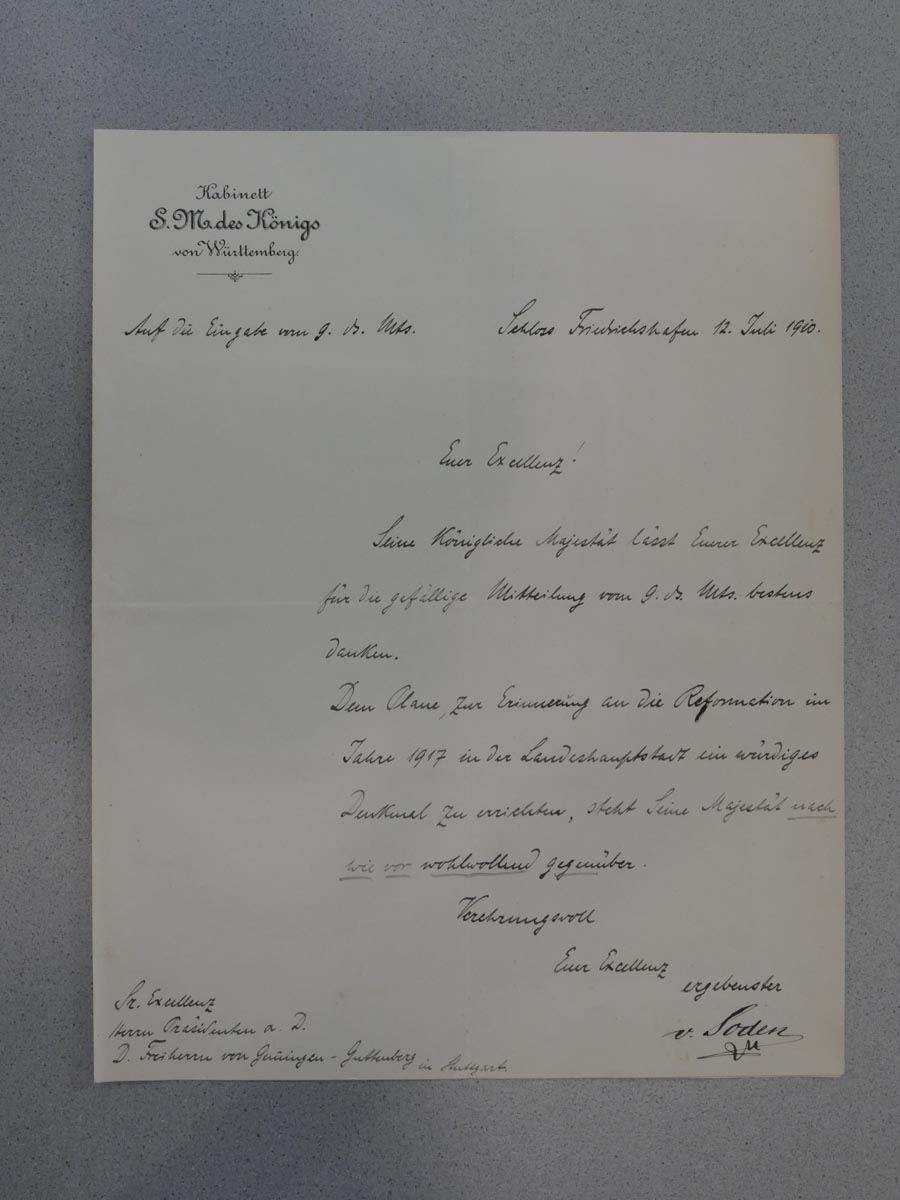 Kabinett
S. M. des Königs
von Württemberg.
Auf die Eingabe vom 9. ds. Mts.
Schloss Friedrichshafen 12. Juli 1910.
Euer Excellenz!
Seine Königliche Majestät lässt Eurer Excellenz
für die gefällige Mitteilung vom 9. ds. Mts. bestens
danken.
Dem Plane, zur Erinnerung an die Reformation im
Jahre 1917 in der Landeshauptstadt ein würdiges
Denkmal zu errichten, steht Seine Majestät nach
wie vor wohlwollend gegenüber.
Verehrungsvoll
Euer Excellenz
ergebenster
v. Soden
Sr. Excellenz
Herrn Präsidenten a. D.
D. Freiherrn von Gemmingen-Guttenberg in Stuttgart.